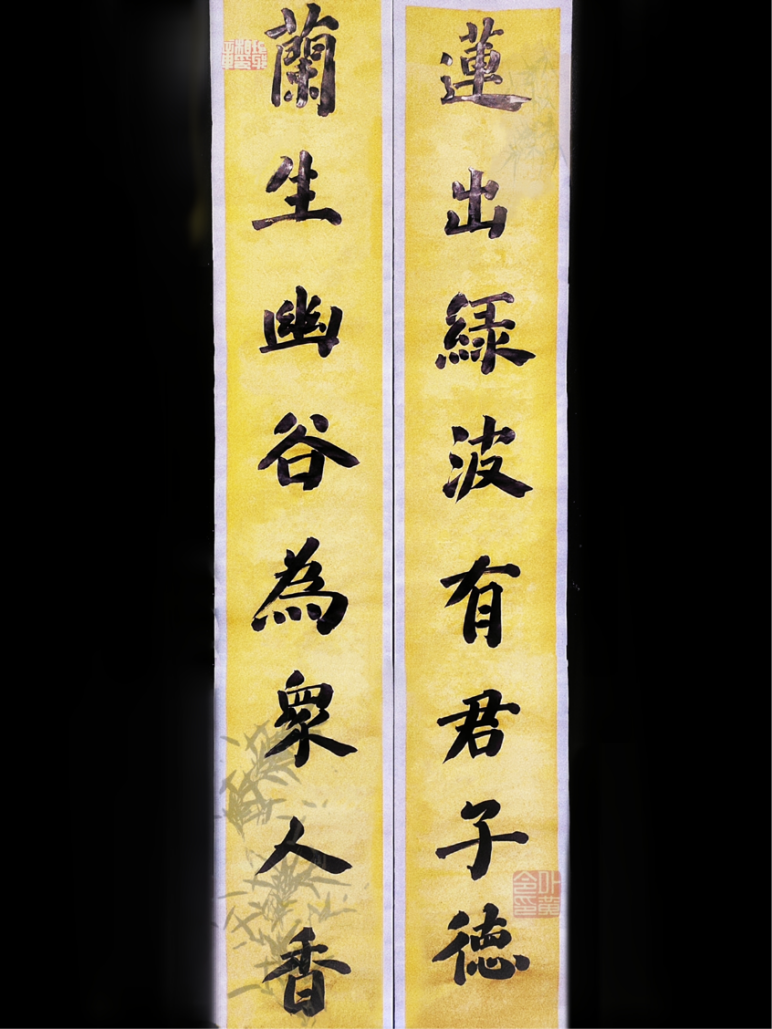 蓮出緑波有君子德
蘭生幽谷為眾人香